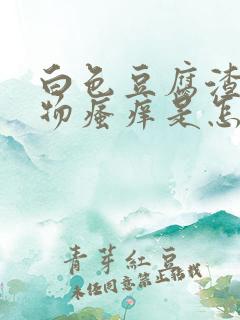 白色豆腐渣
物瘙痒是怎
青芽紅豆
未经同意禁止搬我